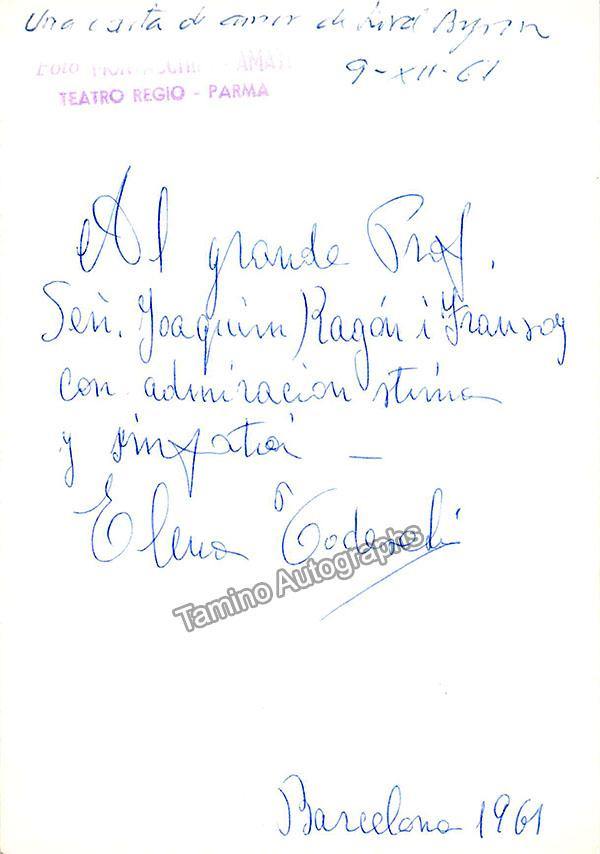 Una carta de amor de Lord Byron
9-XII-61
Foto AMATI
TEATRO REGIO - PARMA
Al grande Prof.
Señ. Joaquim Ragón i Fransoy
con admiracion stima
y simpatia —
Elena Todeschi
Tamino Autographs
Barcelona 1961